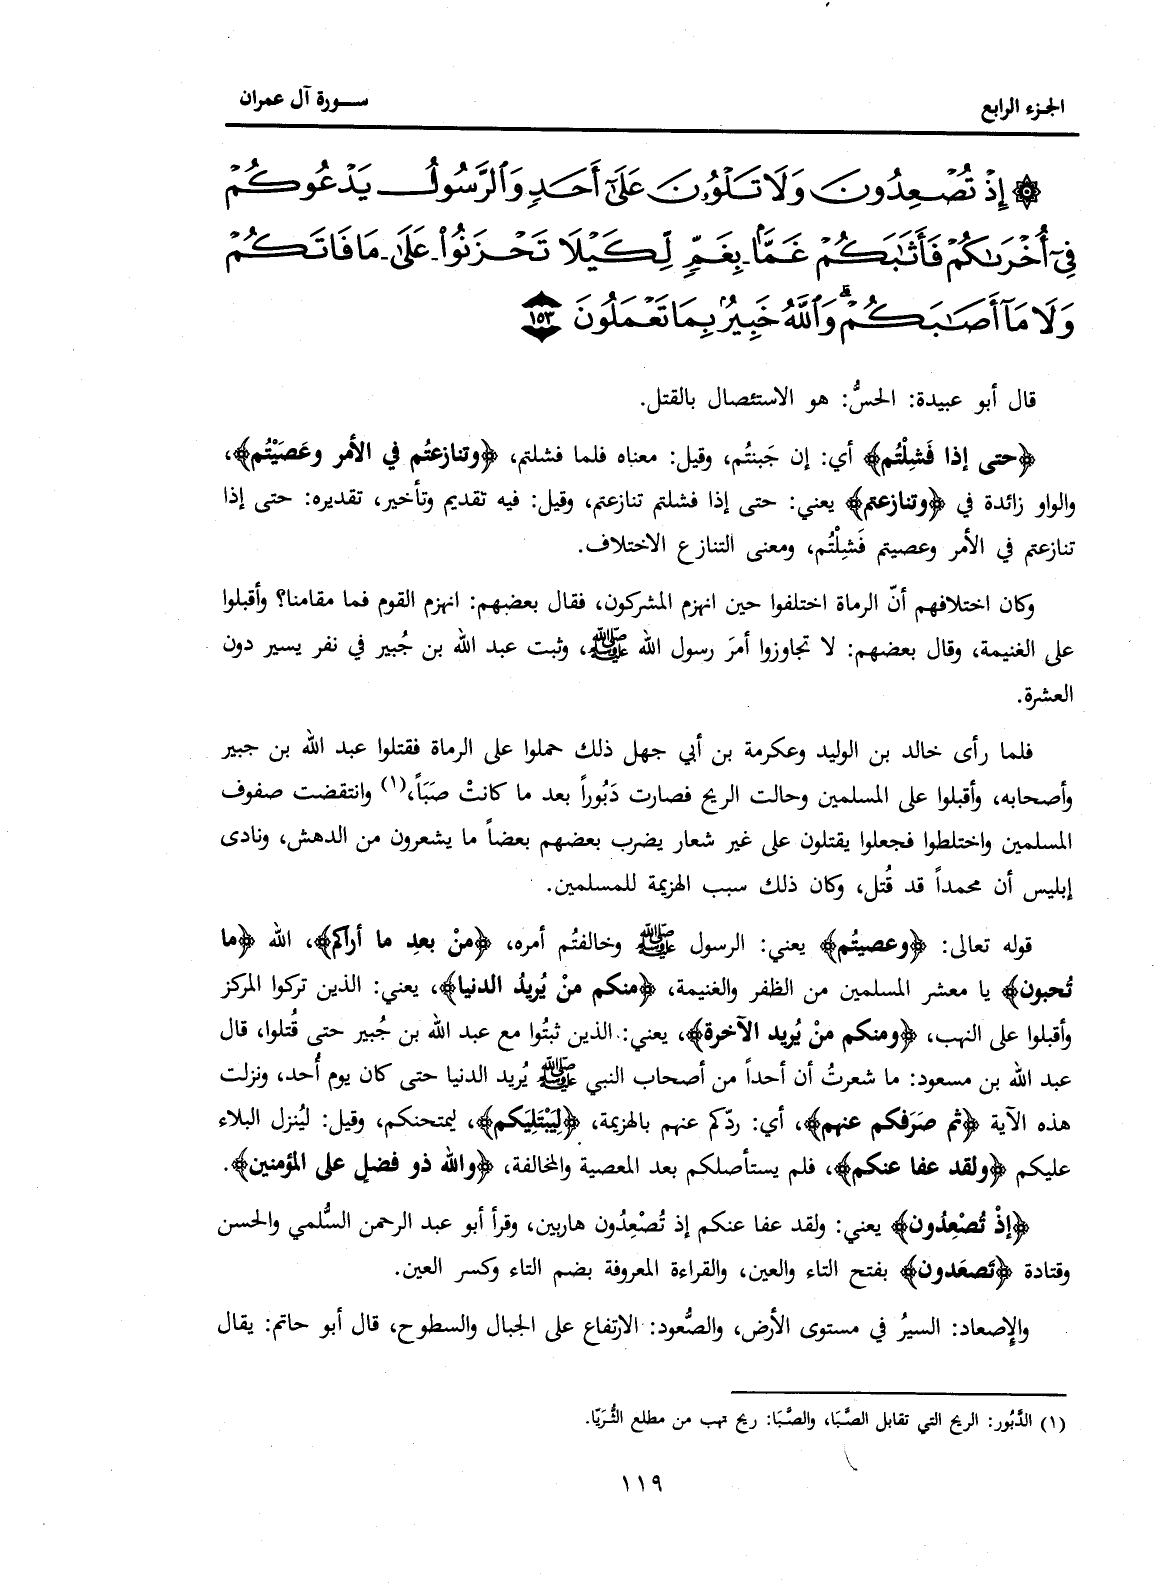 الجزء الرابع
سورة آل عمران
۞ إِذْ تُصْعِدُونَ وَلَا تَلْوُۥنَ عَلَىٰٓ أَحَدٍ وَٱلرَّسُولُ يَدْعُوكُمْ
فِىٓ أُخْرَىٰكُمْ فَأَثَٰبَكُمْ غَمًّۢا بِغَمٍّ لِّكَيْلَا تَحْزَنُوا۟ عَلَىٰ مَا فَاتَكُمْ
وَلَا مَآ أَصَٰبَكُمْ ۗ وَٱللَّهُ خَبِيرٌۢ بِمَا تَعْمَلُونَ ١٥٣
قال أبو عبيدة: الحسُّ: هو الاستئصال بالقتل.
﴿حتى إذا فَشِلْتُم﴾ أي: إن جَبنتُم، وقيل: معناه فلما فشلتم، ﴿وتنازعتُم في الأمر وعَصَيْتُم﴾،
والواو زائدة في ﴿وتنازعتم﴾ يعني: حتى إذا فشلتم تنازعتم، وقيل: فيه تقديم وتأخير، تقديره: حتى إذا
تنازعتم في الأمر وعصيتم فَشِلْتُم، ومعنى التنازع الاختلاف.
وكان اختلافهم أنّ الرماة اختلفوا حين انهزم المشركون، فقال بعضهم: انهزم القوم فما مقامنا؟ وأقبلوا
على الغنيمة، وقال بعضهم: لا تجاوزوا أمرَ رسول الله ﷺ، وثبت عبد الله بن جُبير في نفر يسير دون
العشرة.
فلما رأى خالد بن الوليد وعكرمة بن أبي جهل ذلك حملوا على الرماة فقتلوا عبد الله بن جبير
وأصحابه، وأقبلوا على المسلمين وحالت الريح فصارت دَبُوراً بعد ما كانتْ صَبَاً،(١) وانتقضت صفوف
المسلمين واختلطوا فجعلوا يقتلون على غير شعار يضرب بعضهم بعضاً ما يشعرون من الدهش، ونادى
إبليس أن محمداً قد قُتل، وكان ذلك سبب الهزيمة للمسلمين.
قوله تعالى: ﴿وعصيتُم﴾ يعني: الرسول ﷺ وخالفتُم أمره، ﴿منْ بعدِ ما أراكم﴾، الله ﴿ما
تُحبون﴾ يا معشر المسلمين من الظفر والغنيمة، ﴿منكم منْ يُريدُ الدنيا﴾، يعني: الذين تركوا المركز
وأقبلوا على النهب، ﴿ومنكم منْ يُريد الآخرة﴾، يعني: الذين ثبتُوا مع عبد الله بن جُبير حتى قُتلوا، قال
عبد الله بن مسعود: ما شعرتُ أن أحداً من أصحاب النبي ﷺ يُريد الدنيا حتى كان يوم أُحد، ونزلت
هذه الآية ﴿ثم صَرَفكم عنهم﴾، أي: ردّكم عنهم بالهزيمة، ﴿لِيَبْتَلِيَكم﴾، ليمتحنكم، وقيل: ليُنزل البلاء
عليكم ﴿ولقد عفا عنكم﴾، فلم يستأصلكم بعد المعصية والمخالفة، ﴿والله ذو فضلٍ على المؤمنين﴾.
﴿إذْ تُصْعِدُون﴾ يعني: ولقد عفا عنكم إذ تُصْعِدُون هاربين، وقرأ أبو عبد الرحمن السُّلمي والحسن
وقتادة ﴿تَصعَدون﴾ بفتح التاء والعين، والقراءة المعروفة بضم التاء وكسر العين.
والإصعاد: السيرُ في مستوى الأرض، والصُّعود: الارتفاع على الجبال والسطوح، قال أبو حاتم: يقال
(١) الدَّبُور: الريح التي تقابل الصَّبَا، والصَّبَا: ريح تهب من مطلع الثُّرَيّا.
١١٩